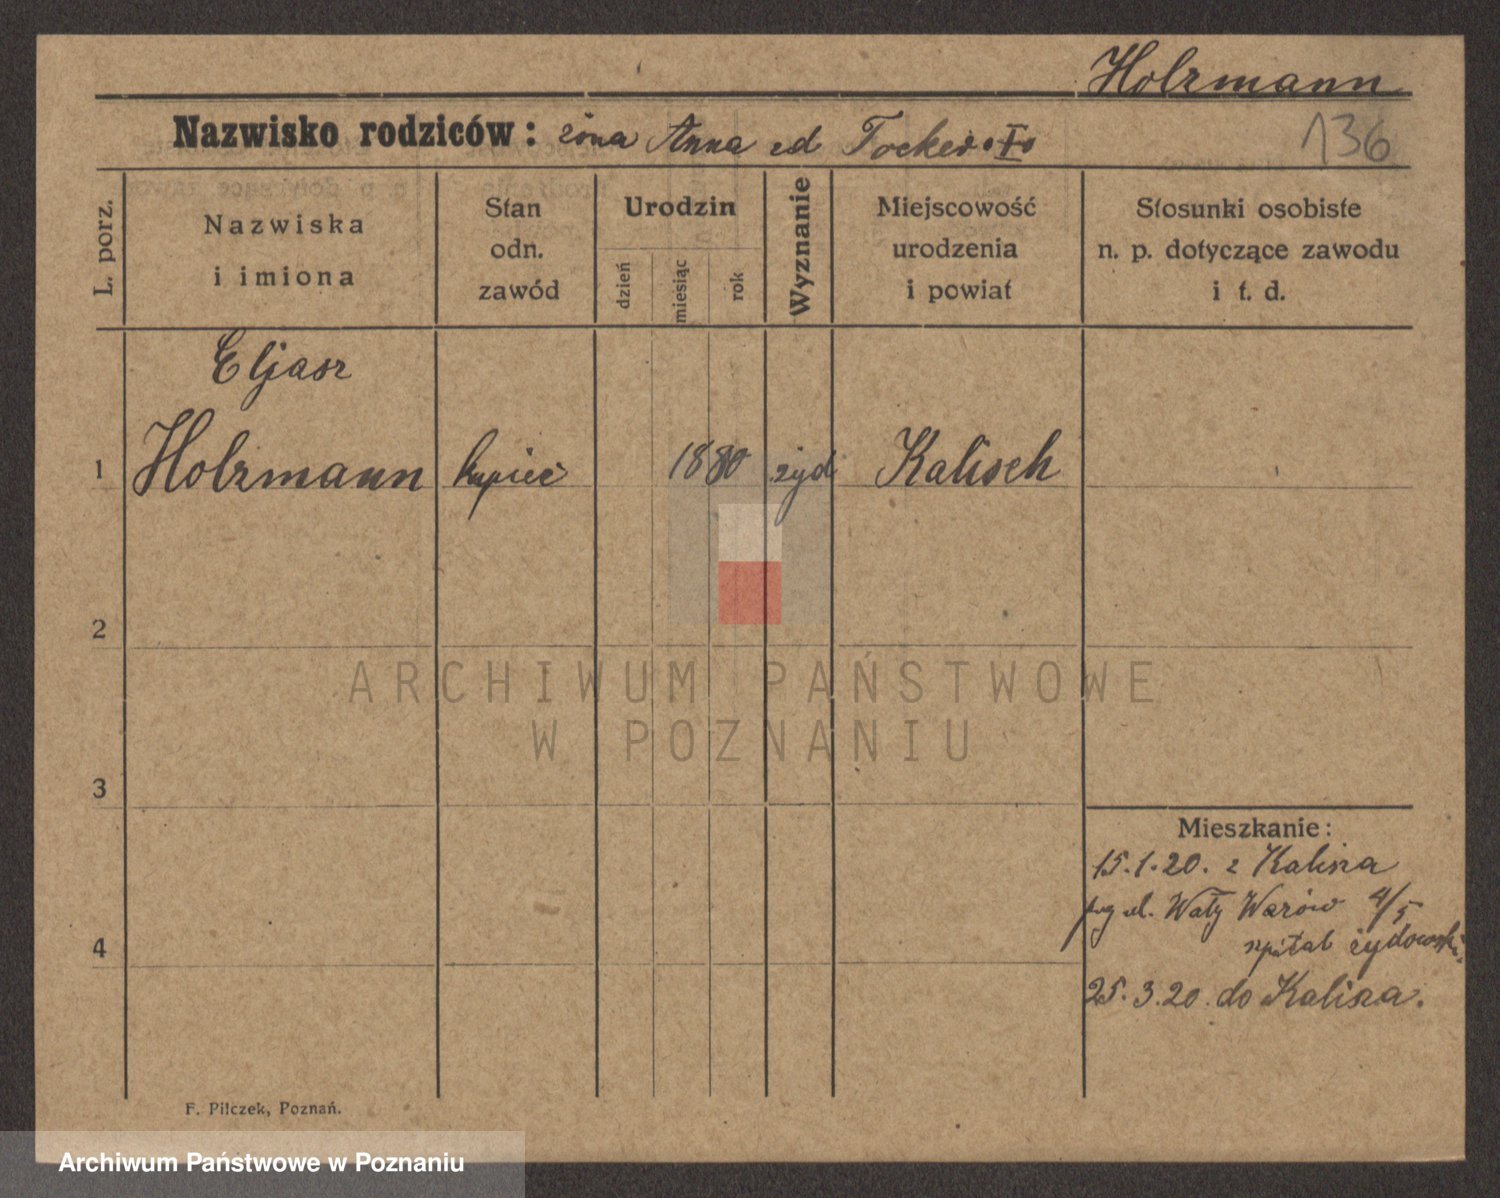 Holzmann
136
Nazwisko rodziców: żona Anna
L. porz.
Nazwiska
i imiona
Stan
odn.
zawód
Urodzin
dzień
miesiąc
rok
Wyznanie
Miejscowość
urodzenia
i powiat
Stosunki osobiste
n. p. dotyczące zawodu
i t. d.
Eljasz
1 Holzmann kupiec 1880 żyd Kalisch
2
3
4
Mieszkanie:
15.1.20. z Kalisza
ul. Wały Wazów 4/5
szpital żydowski
25.3.20. do Kalisza.
F. Pilczek, Poznań.
ARCHIWUM PAŃSTWOWE
W POZNANIU
Archiwum Państwowe w Poznaniu